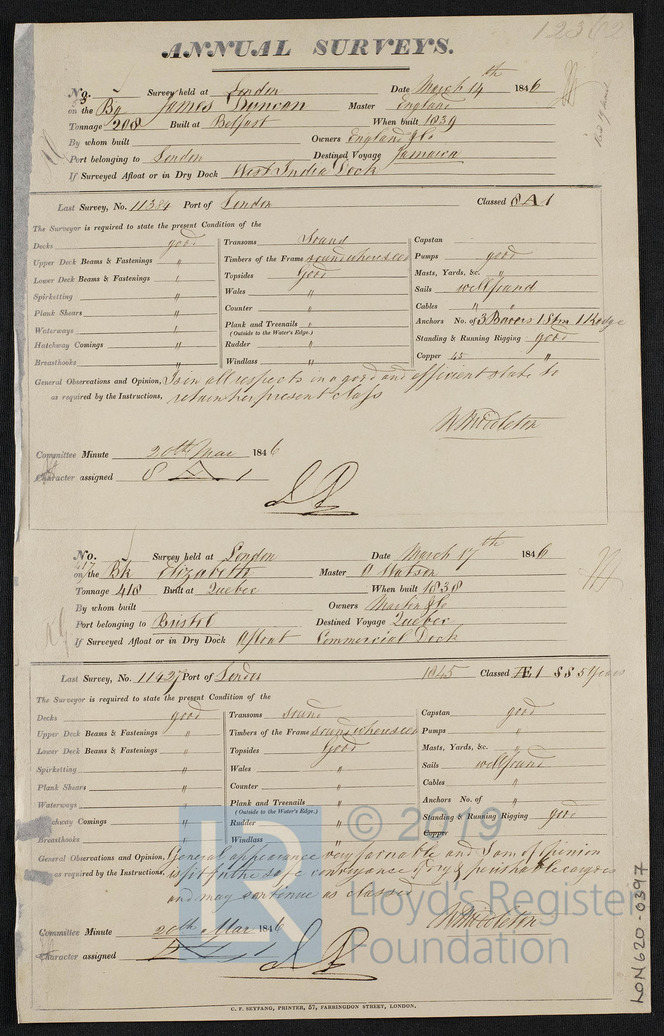 12362
ANNUAL SURVEYS.
No. Survey held at London Date March 14th 1846
on the Bg James Duncan Master England
Tonnage 208 Built at Belfast When built 1839
By whom built Owners England & Co
Port belonging to London Destined Voyage Jamaica
If Surveyed Afloat or in Dry Dock West India Dock
Last Survey, No. 11384 Port of London Classed 8 A 1
The Surveyor is required to state the present Condition of the
Decks good
Upper Deck Beams & Fastenings "
Lower Deck Beams & Fastenings
Spirketting "
Plank Shears "
Waterways
Hatchway Comings "
Breasthooks "
Transoms Sound
Timbers of the Frame sound where seen
Topsides Good
Wales "
Counter "
Plank and Treenails "
(Outside to the Water's Edge.)
Rudder "
Windlass "
Capstan
Pumps good
Masts, Yards, &c. "
Sails well found
Cables " "
Anchors No. of 3 Bowers 1 Strm 1 Kedge
Standing & Running Rigging good
Copper 45 "
General Observations and Opinion, Is in all respects in a good and efficient state to
as required by the Instructions, retain her present class
W Middleton
Committee Minute 20th Mar 1846
Character assigned 8 A 1
No. Survey held at London Date March 17th 1846
on the Bk Elizabeth Master O Watson
Tonnage 418 Built at Quebec When built 1838
By whom built Owners Martin & Co
Port belonging to Bristol Destined Voyage Quebec
If Surveyed Afloat or in Dry Dock Afloat Commercial Dock
Last Survey, No. 11427 Port of London 1845 Classed Æ 1 SS 5 Years
The Surveyor is required to state the present Condition of the
Decks good
Upper Deck Beams & Fastenings "
Lower Deck Beams & Fastenings "
Spirketting "
Plank Shears "
Waterways "
Hatchway Comings "
Breasthooks "
Transoms sound
Timbers of the Frame sound where seen
Topsides Good
Wales "
Counter "
Plank and Treenails "
(Outside to the Water's Edge.)
Rudder "
Windlass "
Capstan good
Pumps "
Masts, Yards, &c. "
Sails well found
Cables "
Anchors No. of "
Standing & Running Rigging good
Copper
General Observations and Opinion, General appearance very favorable and I am of opinion
as required by the Instructions, is fit for the safe conveyance of dry & perishable cargoes
and may continue as classed
W Middleton
Committee Minute 20th Mar 1846
Character assigned Æ 1
C. F. SEYFANG, PRINTER, 57, FARRINGDON STREET, LONDON.
LON620-0397
LR
© 2019
Lloyd's Register
Foundation